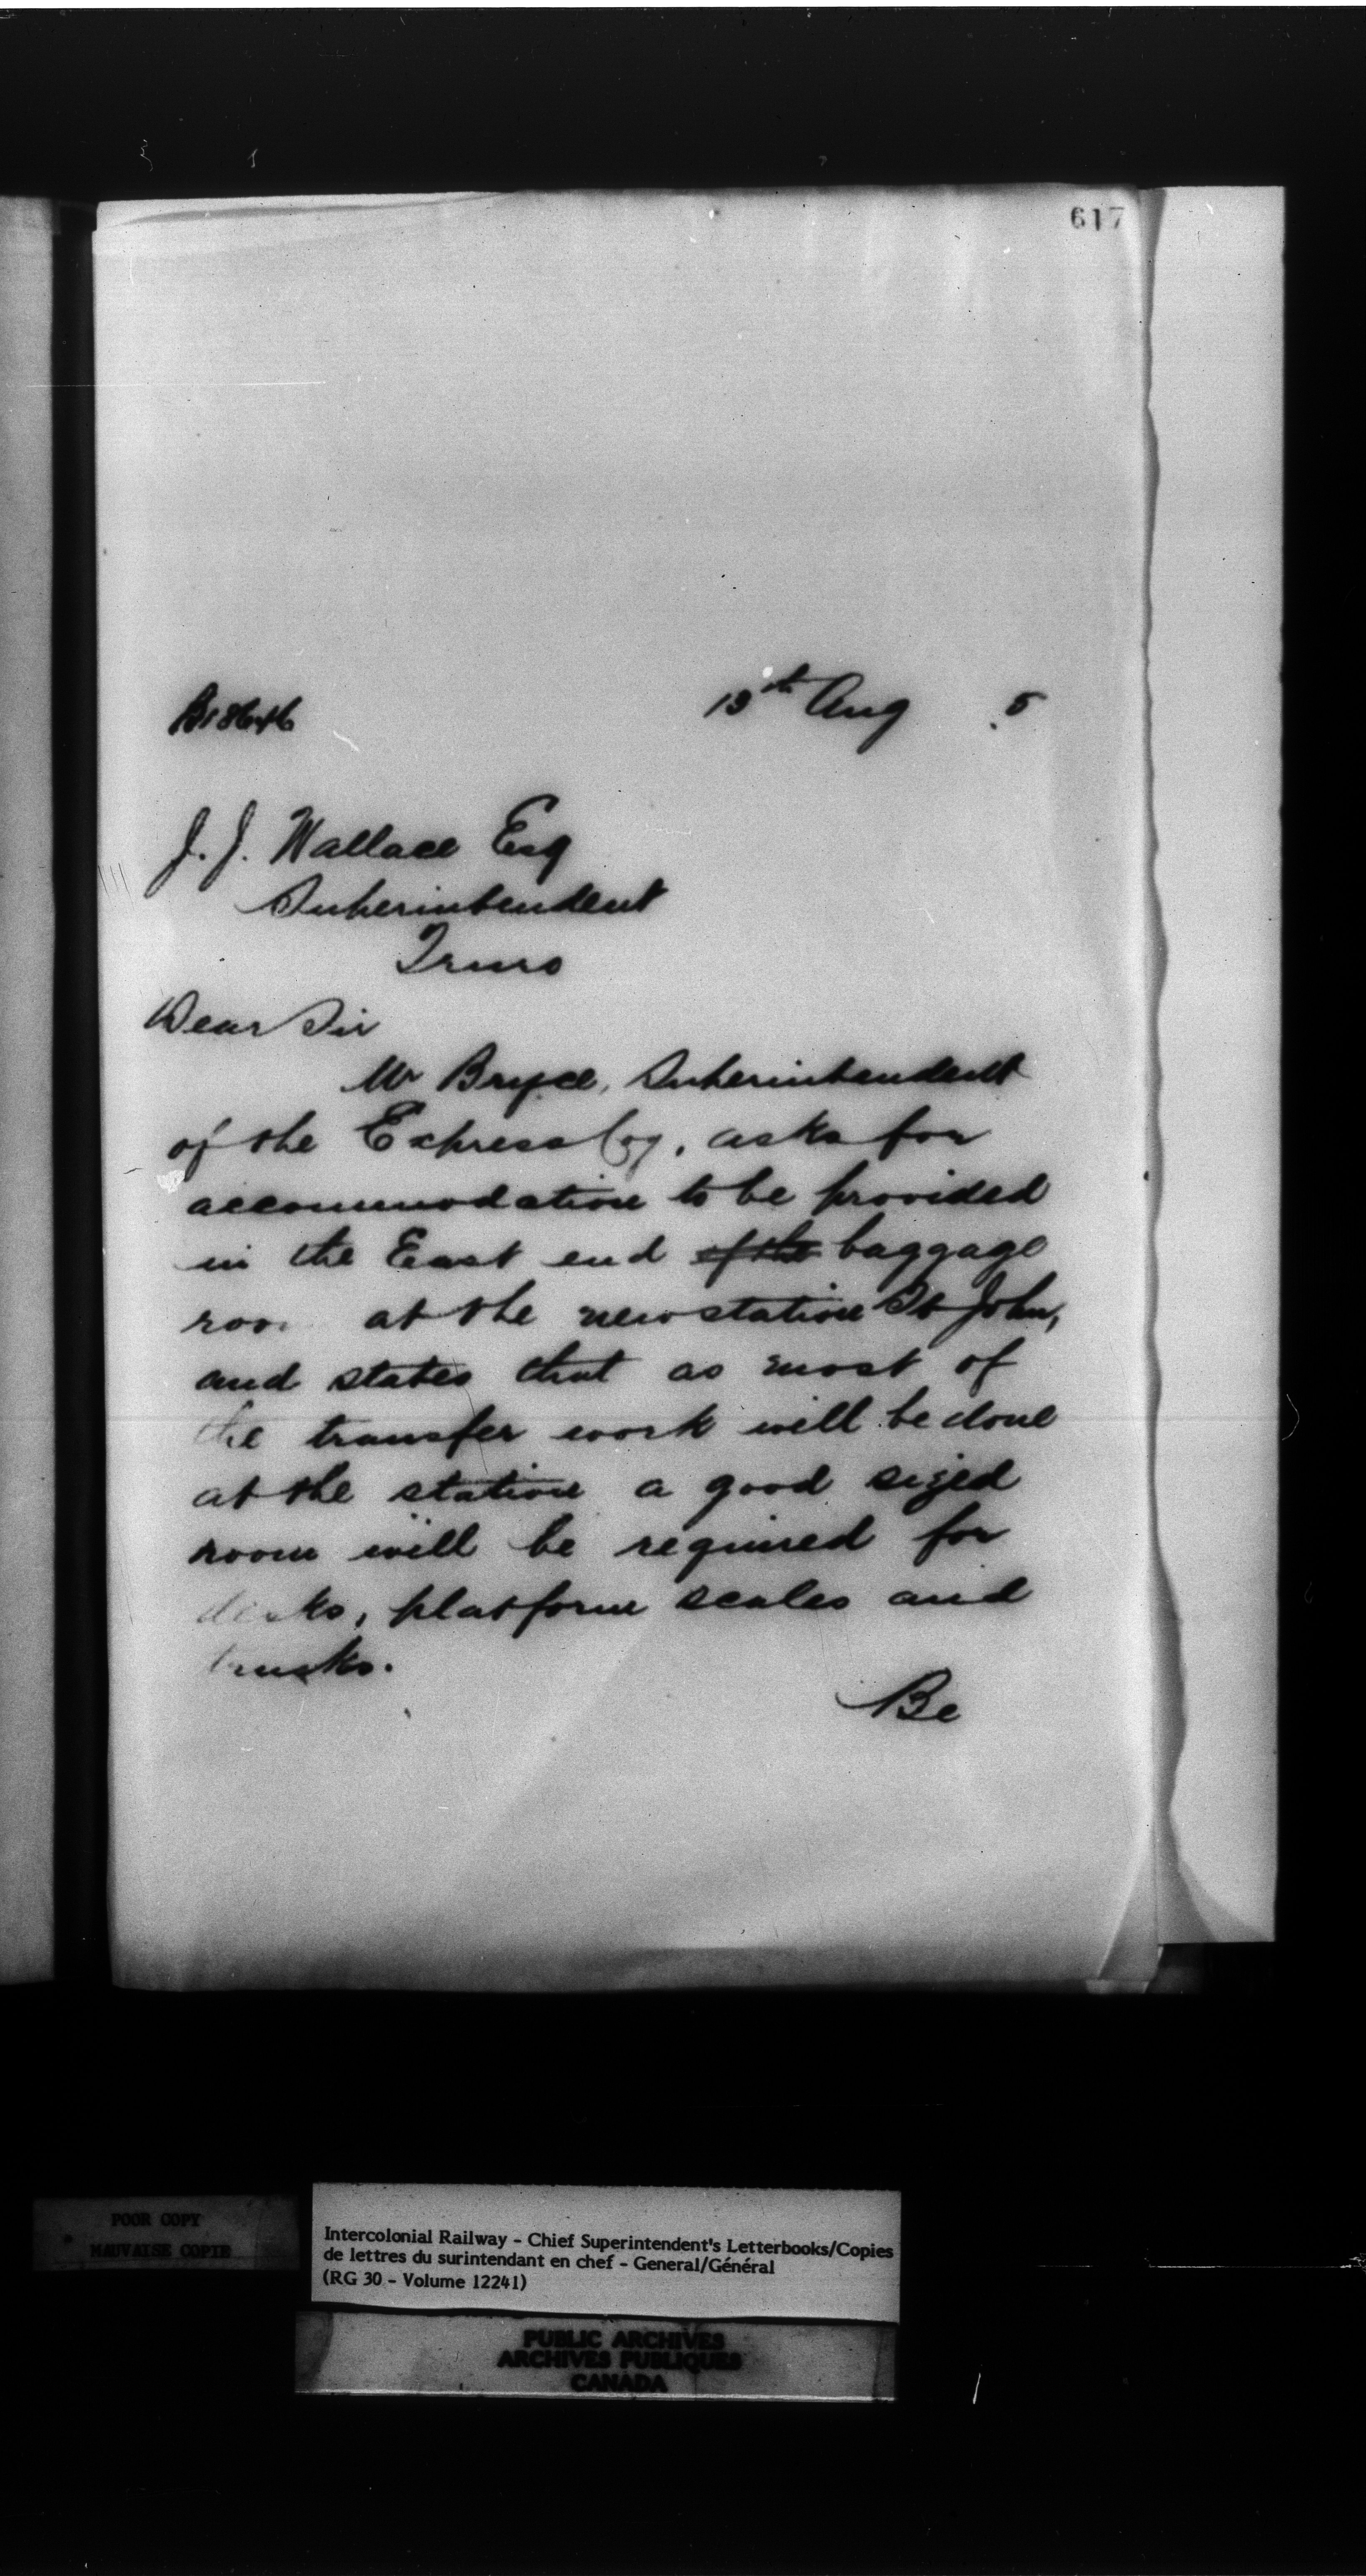 617
13th Aug 5
J. J. Wallace Esq
Superintendent
Truro
Dear Sir
Mr Bryce, Superintendent
of the Express Coy, asks for
accommodation to be provided
in the East end of the baggage
room at the new station St John,
and states that as most of
the transfer work will be done
at the station a good sized
room will be required for
desks, platform scales and
trucks.
Be
POOR COPY
MAUVAISE COPIE
Intercolonial Railway - Chief Superintendent's Letterbooks/Copies
de lettres du surintendant en chef - General/Général
(RG 30 - Volume 12241)
PUBLIC ARCHIVES
ARCHIVES PUBLIQUES
CANADA